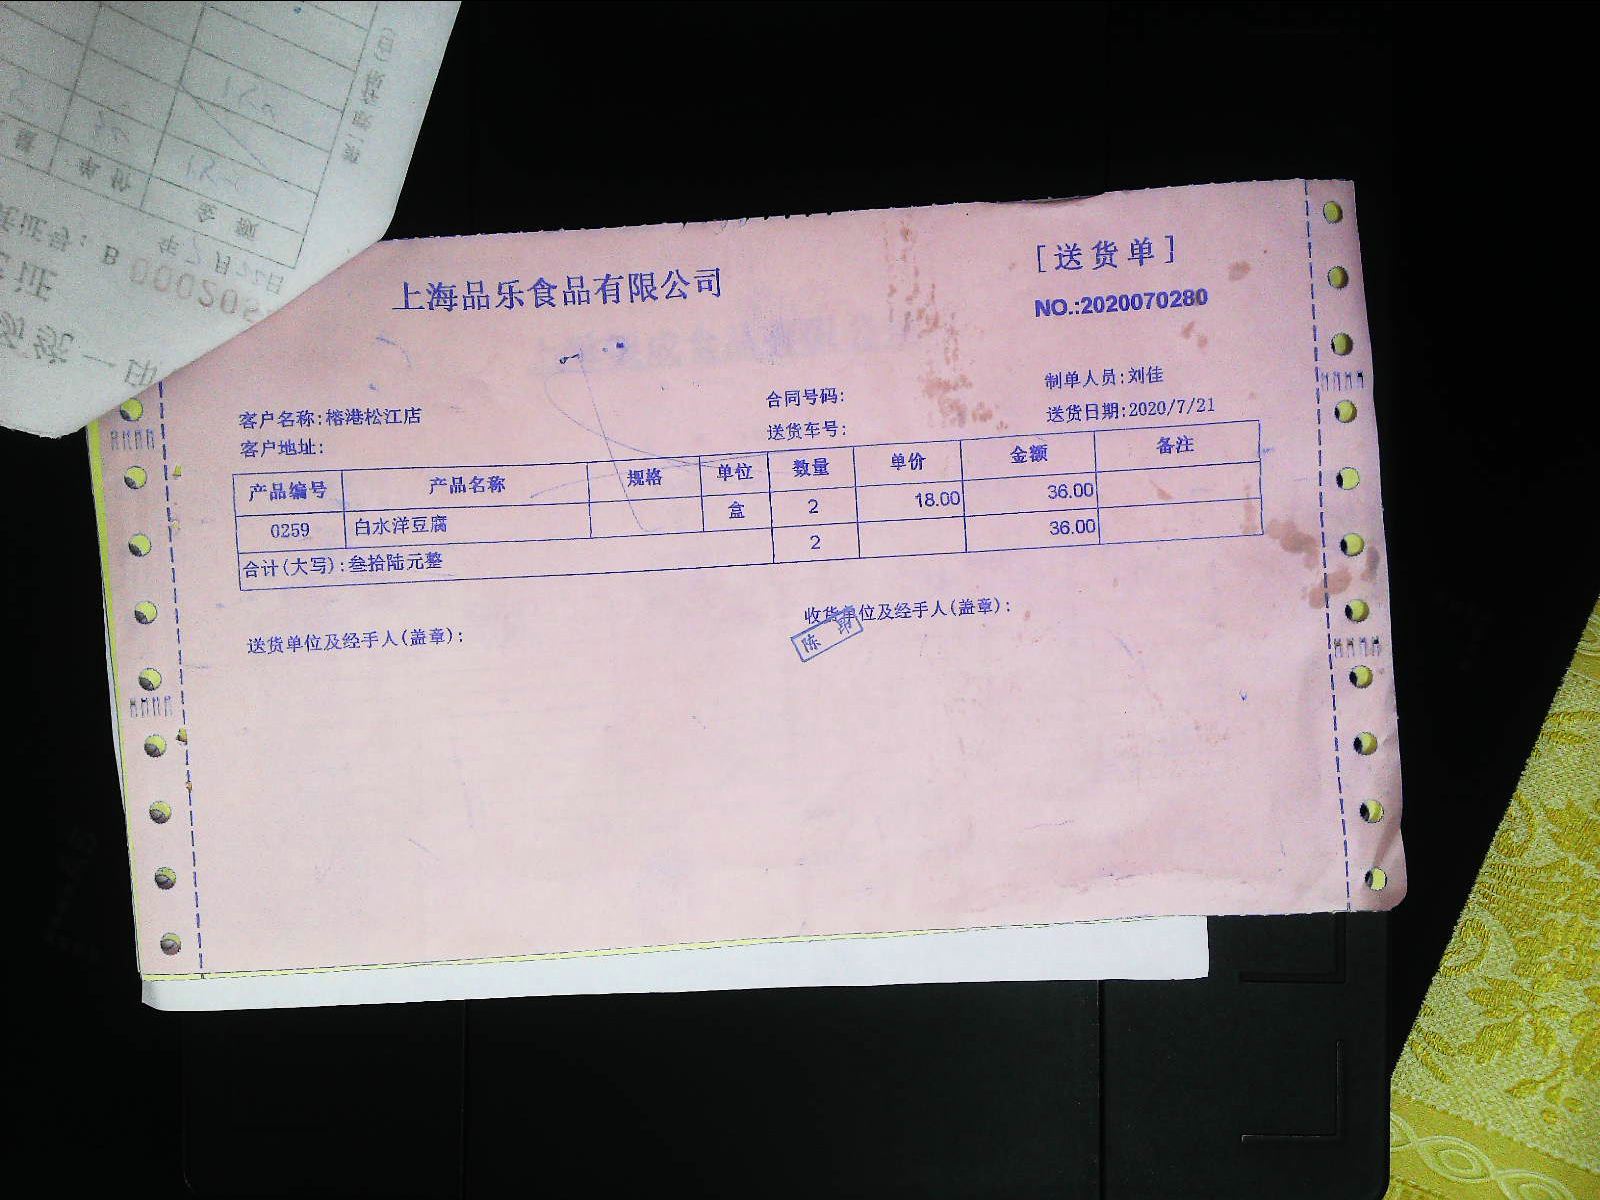 上海品乐食品有限公司
[送货单]
NO.:2020070280
客户名称:榕港松江店
合同号码:
制单人员:刘佳
客户地址:
送货车号:
送货日期:2020/7/21
产品编号 产品名称 规格 单位 数量 单价 金额 备注
0259 白水洋豆腐 盒 2 18.00 36.00
合计(大写):叁拾陆元整 2 36.00
送货单位及经手人(盖章):
收货单位及经手人(盖章):
陈
金额
单价
证号: B 00020
年7月 日
统一印